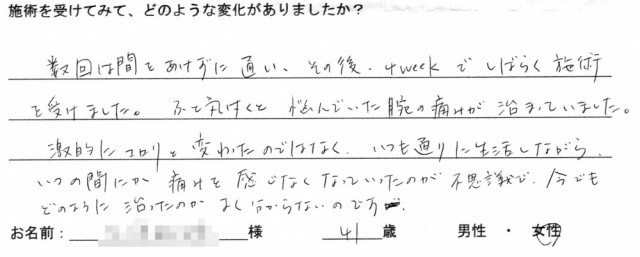 施術を受けてみて、どのような変化がありましたか？
数回は間をあけずに通い、その後、4weekでしばらく施術
を受けました。ふと気付くと悩んでいた腕の痛みが治まっていました。
激的にコロリと変わったのではなく、いつも通りに生活しながら、
いつの間にか痛みを感じなくなっていったのが不思議で、今でも
どのように治ったのかよく分からないのですが。
お名前： 様 41 歳 男性 ・ 女性